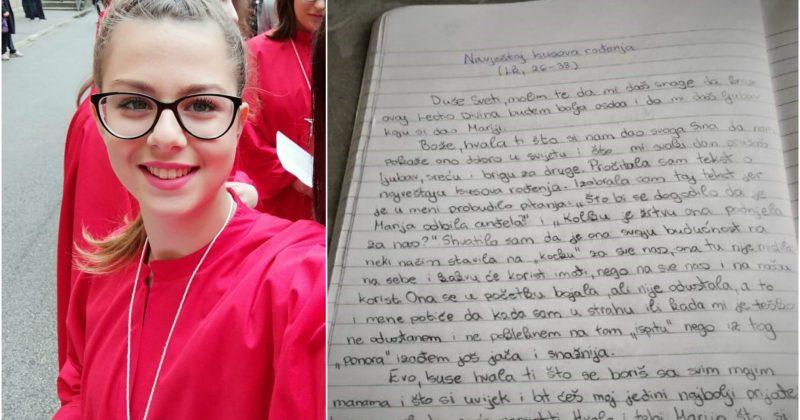 Navještaj Isusova rođenja
(Lk, 26-38)
Duše Sveti, molim te da mi daš snage da kroz
ovaj Lectio Divina budem bolja osoba i da mi daš ljubav
koju si dao Mariji.
Bože, hvala ti što si nam dao svoga Sina da nam
pokaže ono dobro u svijetu i što mi svaki dan
ljubav, sreću i brigu za druge. Pročitala sam tekst o
navještaju Isusova rođenja. Izabrala sam taj tekst jer
je u meni probudilo pitanja: „Što bi se dogodilo da je
Marija odbila anđela" i „Koliku je žrtvu ona podnijela
za nas?" Shvatila sam da je ona svoju budućnost na
neki način stavila na „kocku" za sve nas, ona tu nije mislila
na sebe i kakvu će korist imati, nego na sve nas i na našu
korist. Ona se u početku bojala, ali nije odustala, a to
i mene potiče da kada sam u strahu ili kada mi je teško
ne odustanem i ne pokleknem na tom „ispitu" nego iz tog
„ponora" izađem još jača i snažnija.
Evo, Isuse hvala ti što se boriš sa svim mojim
manama i što si uvijek i bit ćeš moj jedini najbolji prijatelj
Hvala i tebi Marijo što si